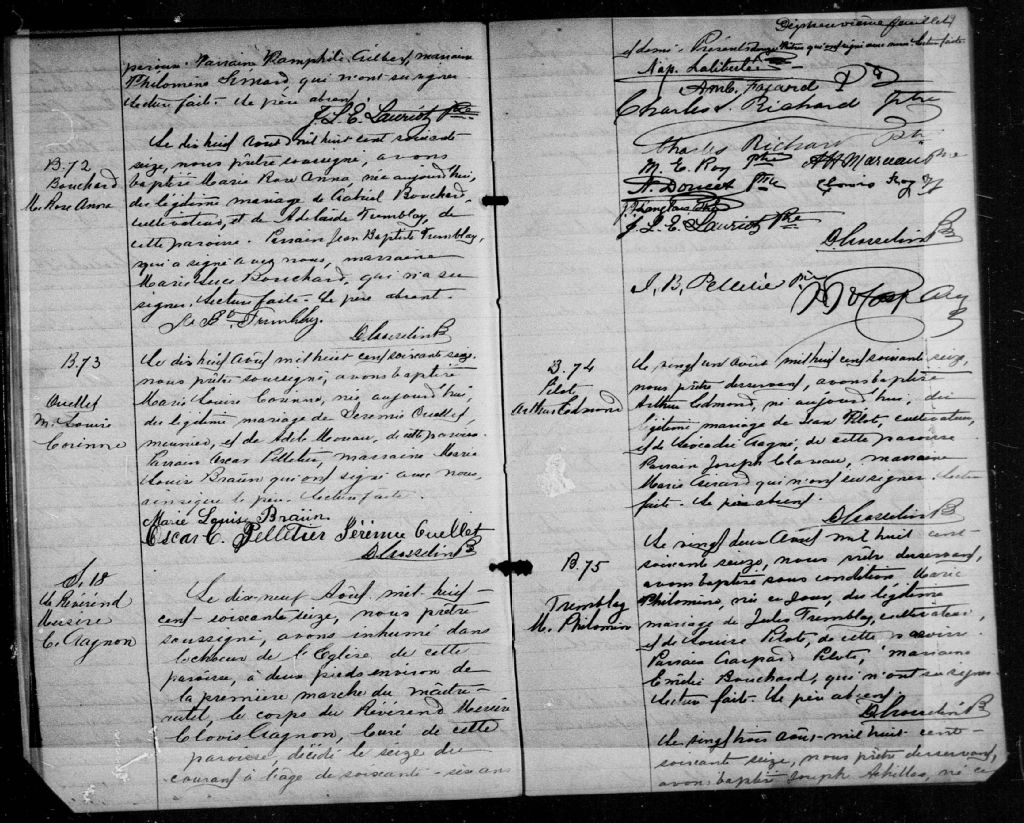 paroisse. Parrain Pamphile Gilbert, marraine
Philomène Simard qui n'ont su signer
Lecture faite. Le père absent.
J. L. E. Lauriot Ptre
B. 72
Bouchard
M. Rose Anna
Le dix huit août mil huit cent soixante
seize, nous prêtre soussigné, avons
baptisé Marie Rose Anna née aujourd'hui,
du légitime mariage de Gabriel Bouchard,
cultivateur, et de Adelaide Tremblay, de
cette paroisse. Parrain Jean Baptiste Tremblay,
qui a signé avec nous, marraine
Marie Luce Bouchard, qui n'a su
signer. Lecture faite. Le père absent.
Jn Bte Trembley
D. Gosselin P
B. 73
Ouellet
M. Louise
Corinne
Le dix huit Août mil huit cent soixante seize,
nous prêtre soussigné, avons baptisé
Marie Louise Corinne, née aujourd'hui,
du légitime mariage de Jeremie Ouellet,
meunier, et de Adele Moreau, de cette paroisse.
Parrain Oscar Pelletier, marraine Marie
Louise Braün qui ont signé avec nous,
ainsi que le père. Lecture faite.
Marie Louise Braün
Oscar C. Pelletier Jérémie Ouellet
D. Gosselin P
S. 18
Le Révérend
Messire
C. Gagnon
Le dix-neuf Août mil-huit-
cent-soixante seize, nous prêtre
soussigné, avons inhumé dans
le choeur de l'Eglise de cette
paroisse, à deux pieds environ de
la première marche du maître-
autel, le corps du Révérend Messire
Clovis Gagnon, Curé de cette
paroisse, décédé le seize du
courant à l'âge de soixante-six ans
Dixneuvième feuillet
et demi. Présents qui ont signé avec nous. Lecture faite
Nap. Laliberté Ptre
Amb. Fafard Ptre
Charles Richard ptre
Charles Richard Ptr
M. E. Roy ptre A H Marceau Ptre
N. Doucet Ptre Louis Roy
J. L. E. Lauriot Ptre
D. Gosselin P
J. B. Pelletier Ptre
B. 74
Pilote
Arthur Edmond
Le vingt un Août mil huit cent soixante seize,
nous prêtre desservant, avons baptisé
Arthur Edmond, né aujourd'hui, du
légitime mariage de Jean Pilot, cultivateur,
et de Leocadie Gagné, de cette paroisse.
Parrain Joseph Claveau, marraine
Marie Girard qui n'ont su signer. Lecture
faite. Le père absent.
D. Gosselin P
B. 75
Tremblay
M. Philomène
Le vingt deux Août mil huit cent
soixante seize, nous prêtre desservant,
avons baptisé sous condition Marie
Philomène, née ce jour, du légitime
mariage de Jules Tremblay, cultivateur,
et de Louise Pilote, de cette paroisse.
Parrain Gaspard Pilote, marraine
Emélie Bouchard, qui n'ont su signer.
Lecture faite. Le père absent.
D. Gosselin P
Le vingt trois août mil huit cent
soixante seize, nous prêtre desservant,
avons baptisé Joseph Achillas, né ce